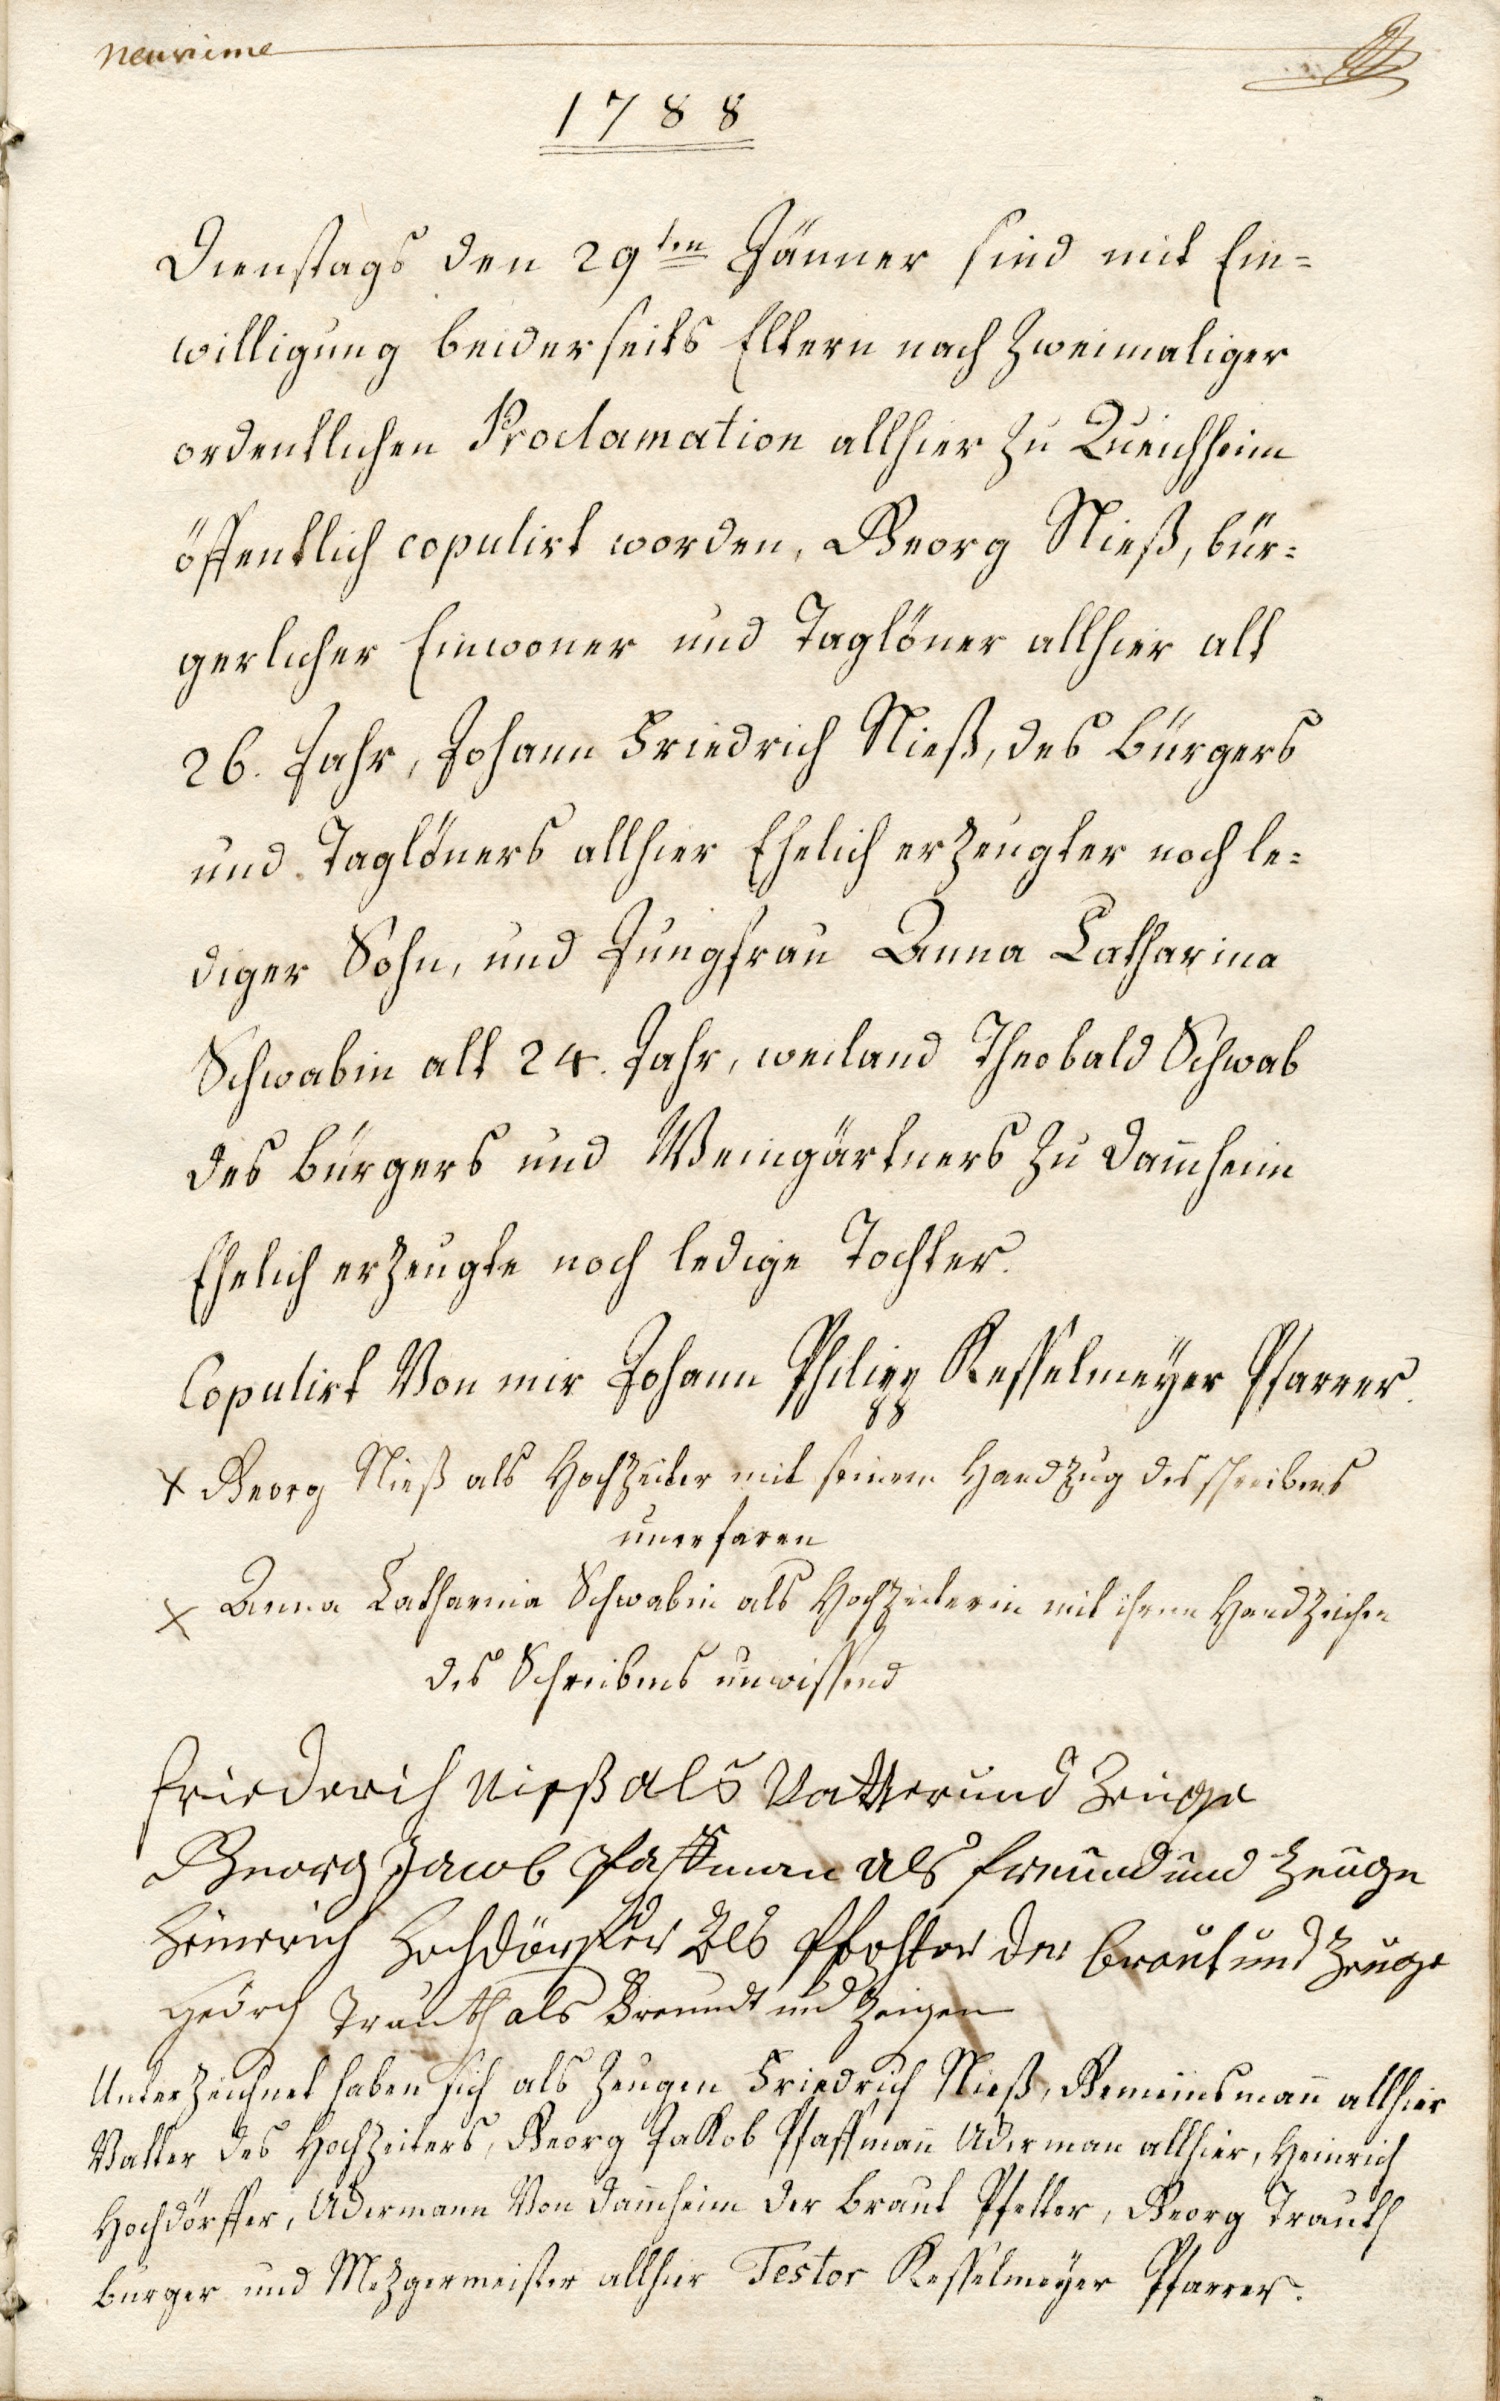 neuvieme
1788
Dienstags den 29ten Jänner sind mit Ein=
willigung beiderseits Eltern nach zweimaliger
ordentlichen Proclamation allhier zu Queichheim
öffentlich copulirt worden, Georg Nieß, bür=
gerlicher Einwoner und Taglöner allhier alt
26. Jahr, Johann Friedrich Nieß, des bürgers
und Taglöners allhier Ehelich erzeugter noch le=
diger Sohn, und Jungfrau Anna Catharina
Schwabin alt 24. Jahr, weiland Theobald Schwab
des bürgers und Weingärtners zu Dam̄heim
Ehelich erzeugte noch ledige Tochter.
Copulirt Von mir Johann Philipp Kesselmeÿer Pfarrer.
x Georg Nieß als Hochzeiter mit seinem Handzug des schreibens
unerfaren
x Anna Catharina Schwabin als Hochzeiterin mit ihrem Handzeichen
des Schreibens unwissend
friederich nieß als Vatter und Zeuge
Georg Jacob Pfaffman als freund und Zeuge
Heinrich Hochdörffer Als Pfehter der braut und Zeuge
Geörch Trauth als Freundt und Zeigen
Unterzeichnet haben sich als Zeugen Friedrich Nieß, Gemeinsman̄ allhier
Vatter des Hochzeiters, Georg Jakob Pfaffman̄ Ackerman allhier, Heinrich
Hochdörffer, Ackermann Von Dam̄heim der braut Pfetter, Georg Trauth
bürger und Mezgermeister allhier Testor Kesselmeÿer Pfarrer.